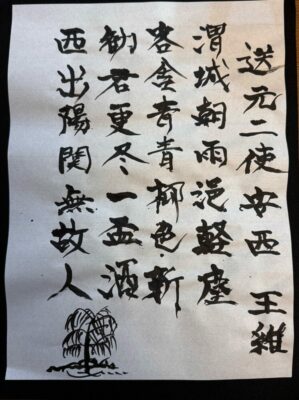 送元二使安西 王維
渭城朝雨浥軽塵
客舎青青柳色新
勧君更尽一盃酒
西出陽関無故人